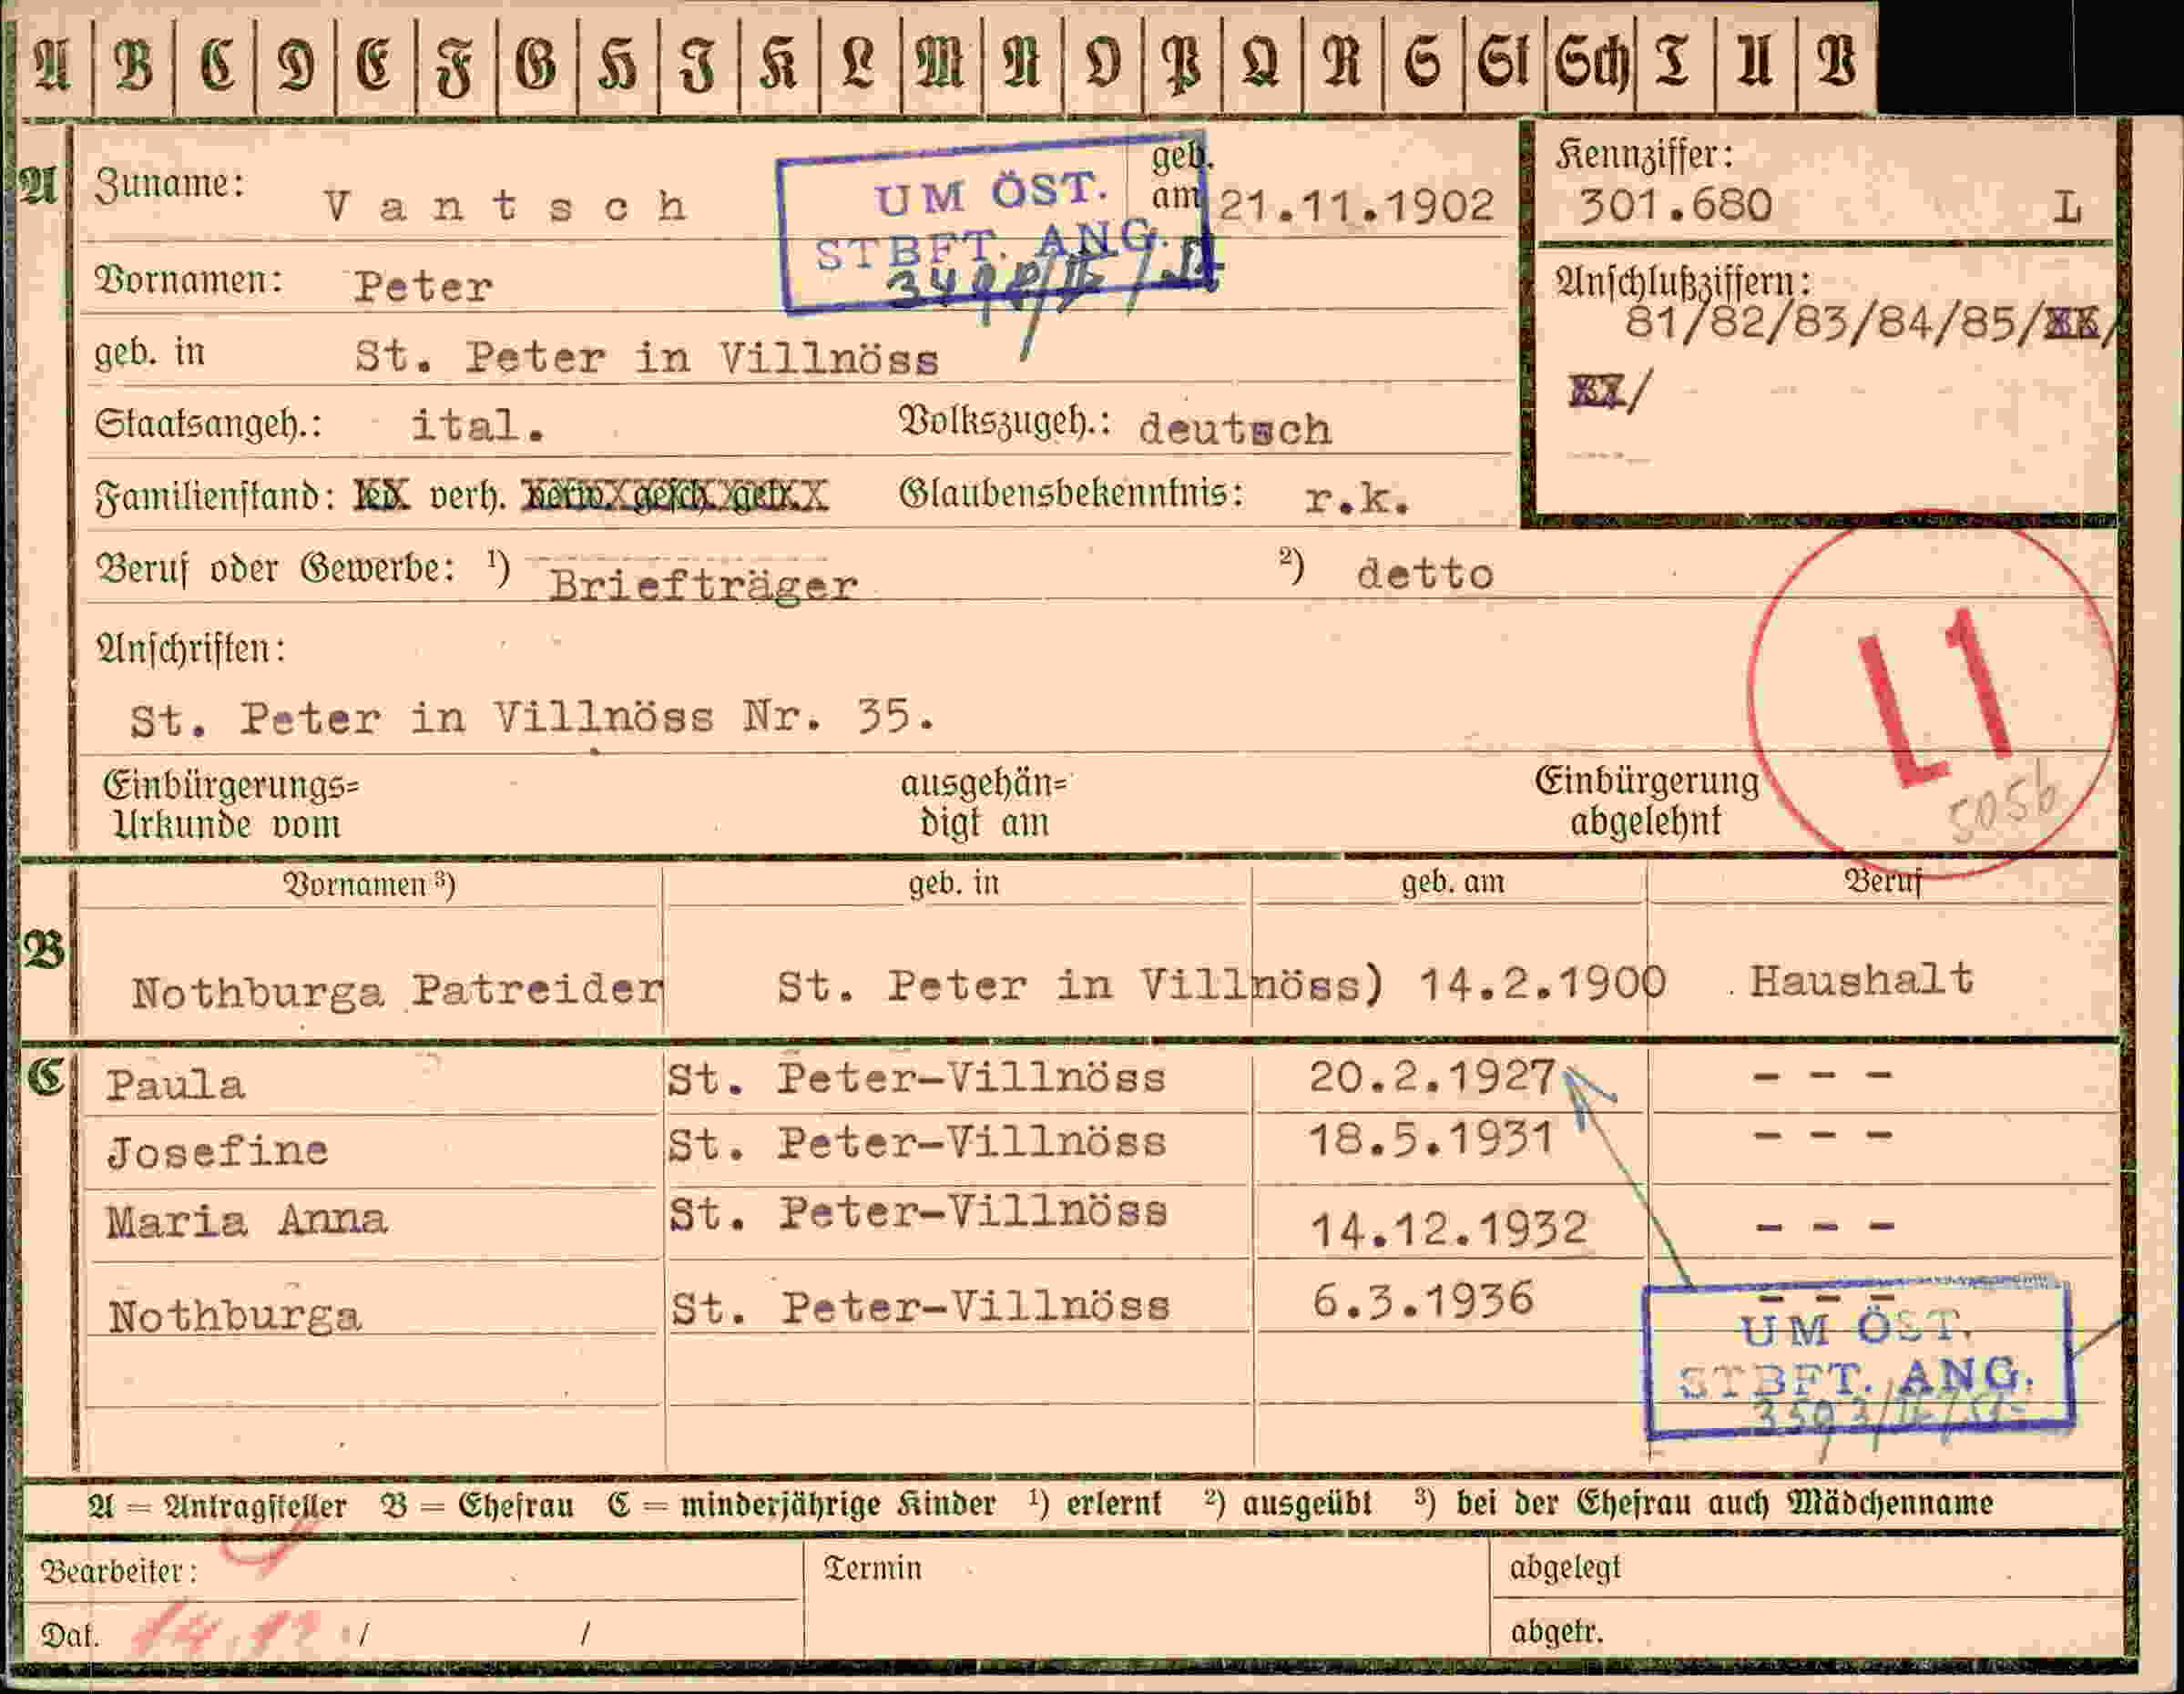 A B C D E F G H I K L M N O P Q R S St Sch T U V
A Zuname: Vantsch geb. am 21.11.1902
UM ÖST.
STBFT. ANG.
Kennziffer:
301.680 L
Vornamen: Peter
Anschlußziffern:
81/82/83/84/85/
geb. in St. Peter in Villnöss
Staatsangeh.: ital. Volkszugeh.: deutsch
Familienstand: led. verh. verw. gesch. getr. Glaubensbekenntnis: r.k.
Beruf oder Gewerbe: ¹) Briefträger ²) detto
Anschriften:
St. Peter in Villnöss Nr. 35.
L1
5056
Einbürgerungs= Urkunde vom
ausgehän= digt am
Einbürgerung abgelehnt
Vornamen ³) geb. in geb. am Beruf
B Nothburga Patreider St. Peter in Villnöss) 14.2.1900 Haushalt
C Paula St. Peter-Villnöss 20.2.1927 - - -
Josefine St. Peter-Villnöss 18.5.1931 - - -
Maria Anna St. Peter-Villnöss 14.12.1932 - - -
Nothburga St. Peter-Villnöss 6.3.1936 - - -
UM ÖST.
STBFT. ANG.
A = Antragsteller B = Ehefrau C = minderjährige Kinder ¹) erlernt ²) ausgeübt ³) bei der Ehefrau auch Mädchenname
Bearbeiter: Termin abgelegt
Dat. 14.12. / / abgetr.